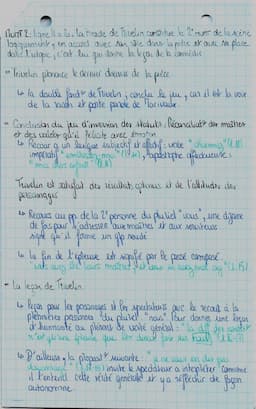 la tirade de Trivelin constitue le 2e mvt de la scène
logiquement, en accord avec son rôle dans la pièce et avec sa place
dans l'utopie, c'est lui qui donne la leçon de la comédie
- Trivelin prononce le dernier discours de la pièce
↳ la double fonct° de Trivelin, conclu le jeu, car il est la voix
de la morale et porte parole de Marivaux
- Conclusion du jeu d'inversion des statuts. Réconciliat° des maîtres
et des valets qu'il félicite avec émotion
↳ Recours à un lexique subjectif et affectif : verbe
impératif "embrassez-moi", apostrophe affectueuse :
"mes chers enfants"
Trivelin est satisfait des résultats obtenus et de l'attitude des
personnages
↳ Recours au pp de la 2e personne du pluriel "vous", une dizaine
de fois pour s'adresser aux maîtres et aux serviteurs
signe qu'il forme un gp soudé
↳ La fin de l'épreuve est signifié par le passé composé
- La leçon de Trivelin
↳ leçon pour les personnages et les spectateurs avec le recours à la
première personne du pluriel "nous". Pour donner une leçon
d'humanité au présent de vérité général : "la diff des conditions
n'est qu'une épreuve que les dieux font sur nous"
↳ D'ailleurs, la proposit° suivante :
invite le spectateur à interpréter comme
il l'entend cette vérité générale et y réfléchir de façon
autonome.